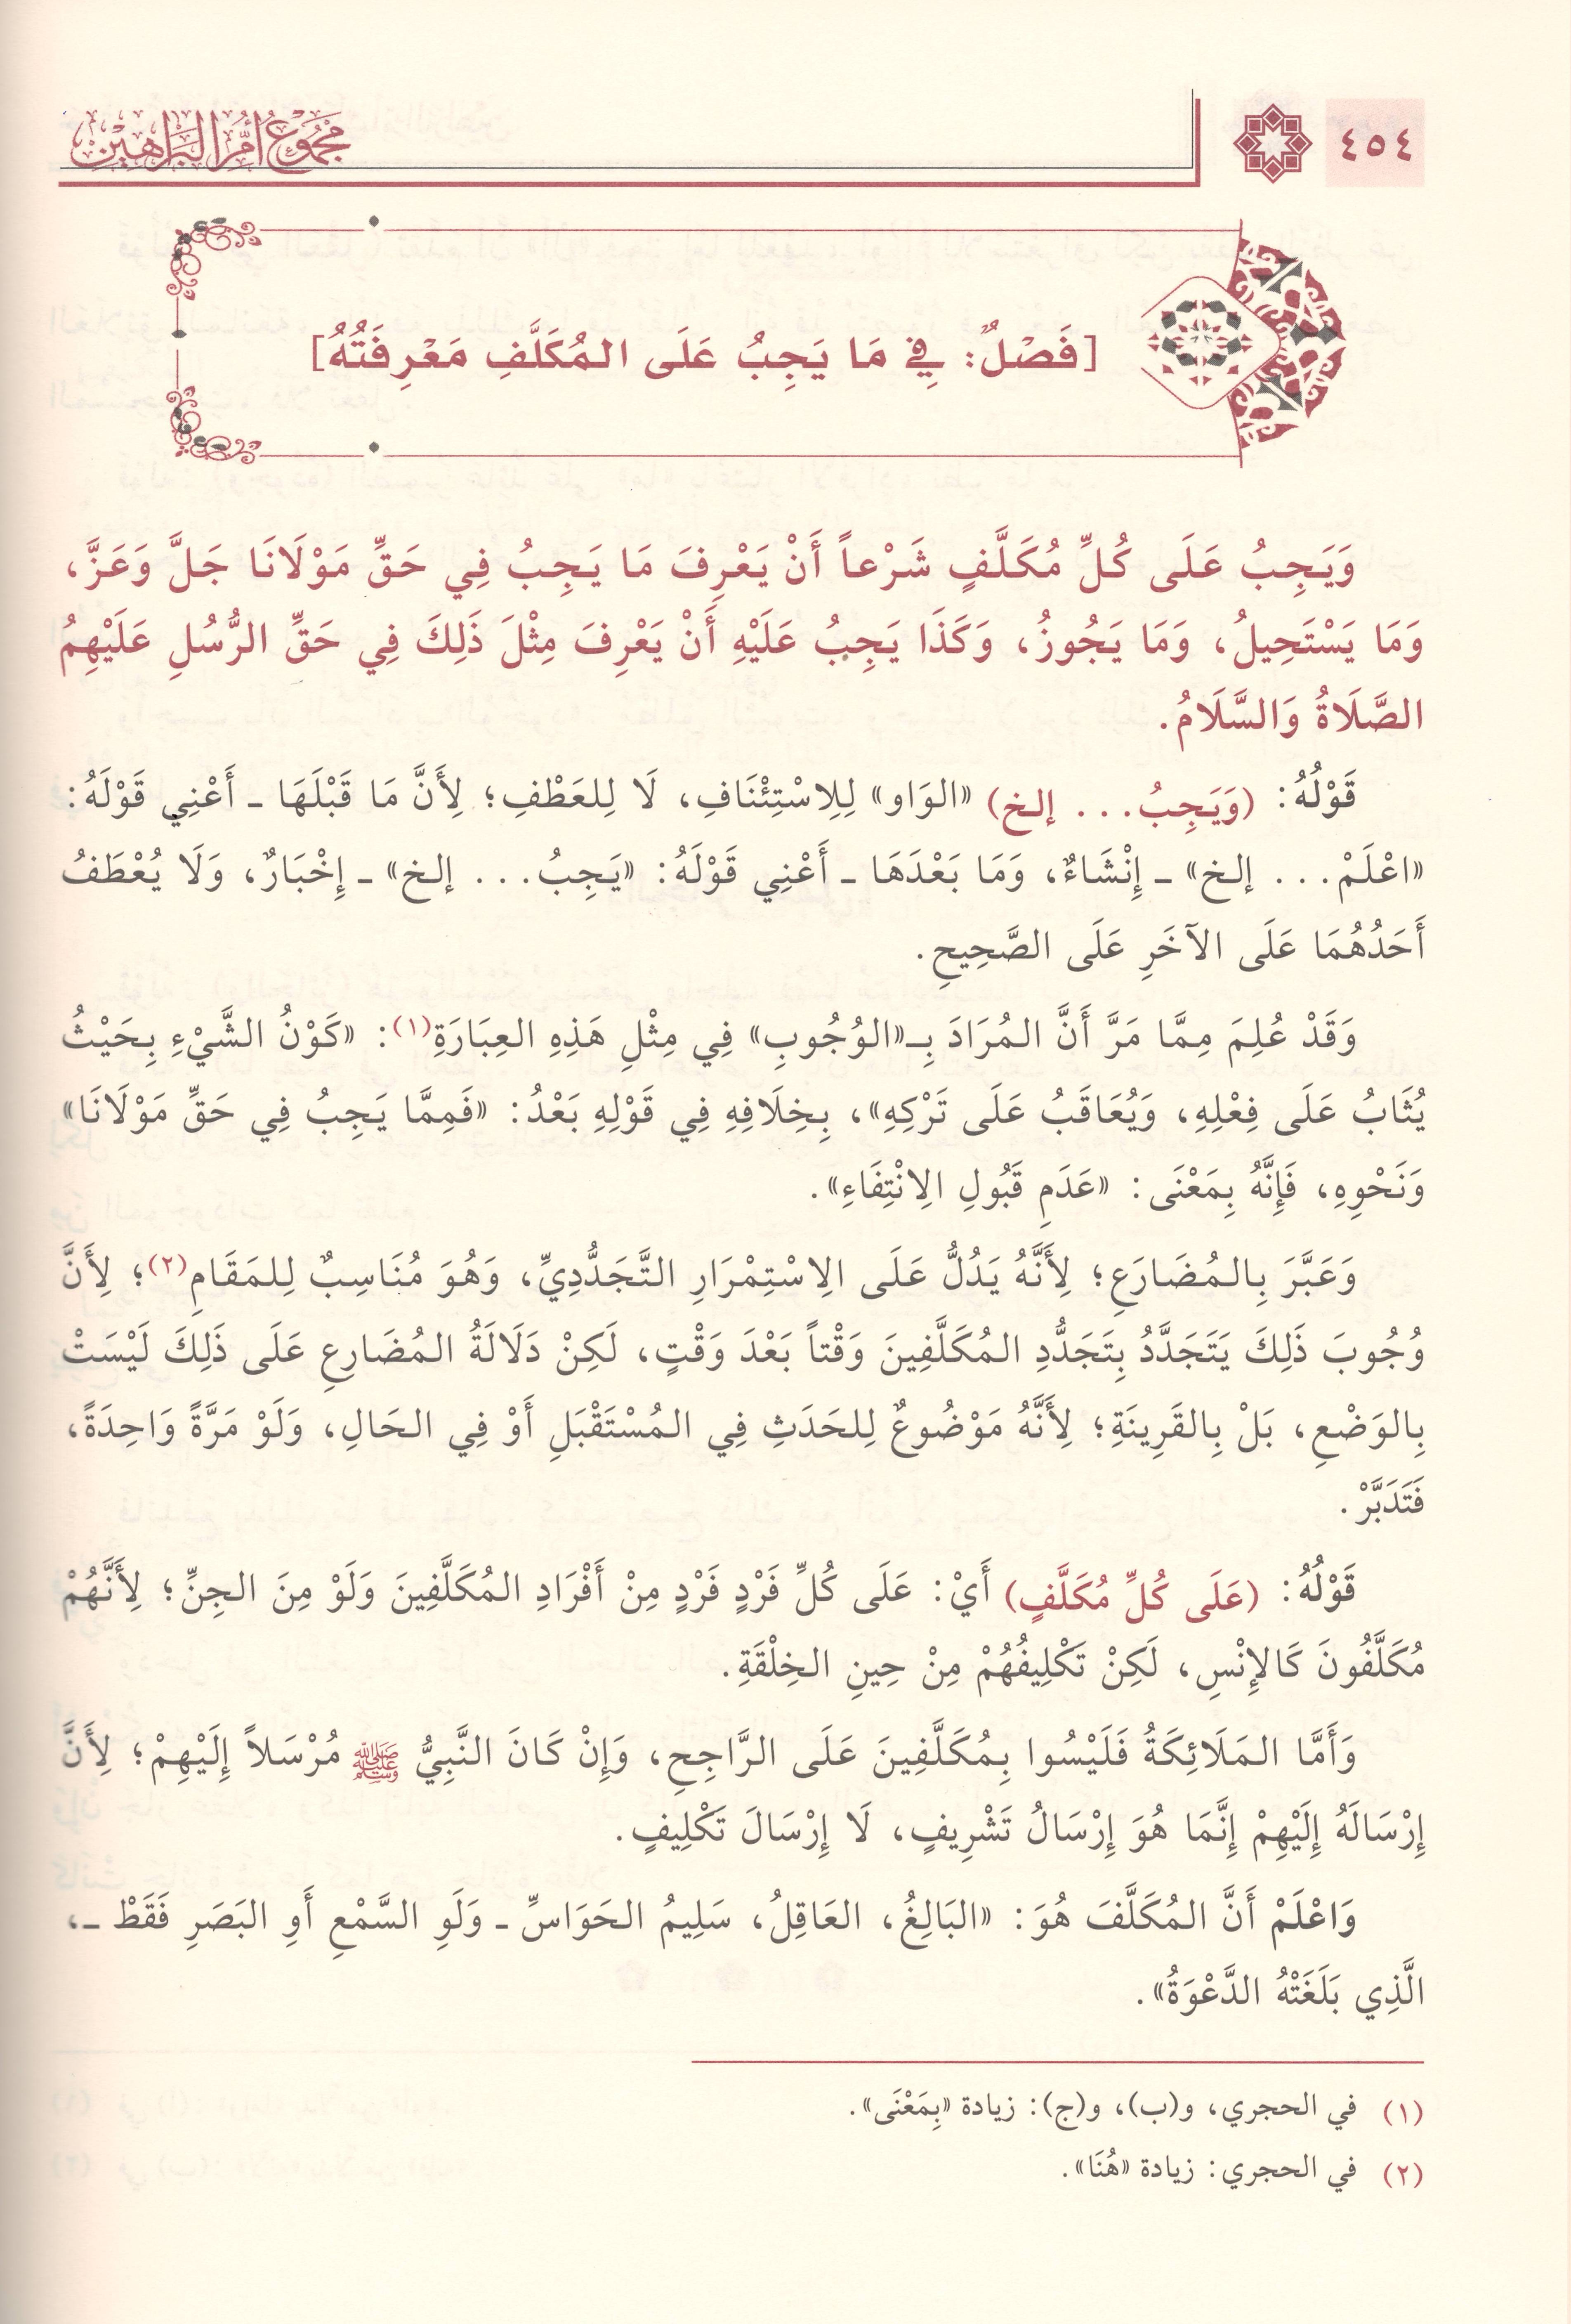 ٤٥٤
مَجْمُوعُ أُمِّ البَرَاهِين
[فَصْلٌ: فِي مَا يَجِبُ عَلَى المُكَلَّفِ مَعْرِفَتُهُ]
وَيَجِبُ عَلَى كُلِّ مُكَلَّفٍ شَرْعاً أَنْ يَعْرِفَ مَا يَجِبُ فِي حَقِّ مَوْلَانَا جَلَّ وَعَزَّ،
وَمَا يَسْتَحِيلُ، وَمَا يَجُوزُ، وَكَذَا يَجِبُ عَلَيْهِ أَنْ يَعْرِفَ مِثْلَ ذَلِكَ فِي حَقِّ الرُّسُلِ عَلَيْهِمُ
الصَّلَاةُ وَالسَّلَامُ.
قَوْلُهُ: (وَيَجِبُ... إلخ) «الوَاو» لِلِاسْتِئْنَافِ، لَا لِلعَطْفِ؛ لِأَنَّ مَا قَبْلَهَا ـ أَعْنِي قَوْلَهُ:
«اعْلَمْ... إلخ» ـ إِنْشَاءٌ، وَمَا بَعْدَهَا ـ أَعْنِي قَوْلَهُ: «يَجِبُ... إلخ» ـ إِخْبَارٌ، وَلَا يُعْطَفُ
أَحَدُهُمَا عَلَى الآخَرِ عَلَى الصَّحِيحِ.
وَقَدْ عُلِمَ مِمَّا مَرَّ أَنَّ المُرَادَ بِـ«الوُجُوبِ» فِي مِثْلِ هَذِهِ العِبَارَةِ(١): «كَوْنُ الشَّيْءِ بِحَيْثُ
يُثَابُ عَلَى فِعْلِهِ، وَيُعَاقَبُ عَلَى تَرْكِهِ»، بِخِلَافِهِ فِي قَوْلِهِ بَعْدُ: «فَمِمَّا يَجِبُ فِي حَقِّ مَوْلَانَا»
وَنَحْوِهِ، فَإِنَّهُ بِمَعْنَى: «عَدَمِ قَبُولِ الِانْتِفَاءِ».
وَعَبَّرَ بِالمُضَارَعِ؛ لِأَنَّهُ يَدُلُّ عَلَى الِاسْتِمْرَارِ التَّجَدُّدِيِّ، وَهُوَ مُنَاسِبٌ لِلمَقَامِ(٢)؛ لِأَنَّ
وُجُوبَ ذَلِكَ يَتَجَدَّدُ بِتَجَدُّدِ المُكَلَّفِينَ وَقْتاً بَعْدَ وَقْتٍ، لَكِنْ دَلَالَةُ المُضَارِعِ عَلَى ذَلِكَ لَيْسَتْ
بِالوَضْعِ، بَلْ بِالقَرِينَةِ؛ لِأَنَّهُ مَوْضُوعٌ لِلحَدَثِ فِي المُسْتَقْبَلِ أَوْ فِي الحَالِ، وَلَوْ مَرَّةً وَاحِدَةً،
فَتَدَبَّرْ.
قَوْلُهُ: (عَلَى كُلِّ مُكَلَّفٍ) أَيْ: عَلَى كُلِّ فَرْدٍ فَرْدٍ مِنْ أَفْرَادِ المُكَلَّفِينَ وَلَوْ مِنَ الجِنِّ؛ لِأَنَّهُمْ
مُكَلَّفُونَ كَالإِنْسِ، لَكِنْ تَكْلِيفُهُمْ مِنْ حِينِ الخِلْقَةِ.
وَأَمَّا المَلَائِكَةُ فَلَيْسُوا بِمُكَلَّفِينَ عَلَى الرَّاجِحِ، وَإِنْ كَانَ النَّبِيُّ ﷺ مُرْسَلاً إِلَيْهِمْ؛ لِأَنَّ
إِرْسَالَهُ إِلَيْهِمْ إِنَّمَا هُوَ إِرْسَالُ تَشْرِيفٍ، لَا إِرْسَالَ تَكْلِيفٍ.
وَاعْلَمْ أَنَّ المُكَلَّفَ هُوَ: «البَالِغُ، العَاقِلُ، سَلِيمُ الحَوَاسِّ ـ وَلَوِ السَّمْعِ أَوِ البَصَرِ فَقَطْ ـ،
الَّذِي بَلَغَتْهُ الدَّعْوَةُ».
(١) في الحجري، و(ب)، و(ج): زيادة «بِمَعْنَى».
(٢) في الحجري: زيادة «هُنَا».